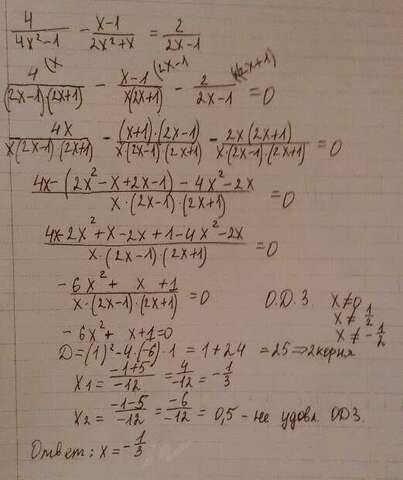 4/(4x²-1) - (x-1)/(2x²+x) = 2/(2x-1)
4/((2x-1)·(2x+1)) (x - (x-1)/(x(2x+1)) (2x-1 - 2/(2x-1) x(2x+1) = 0
4x/(x(2x-1)·(2x+1)) - (x+1)·(2x-1)/(x(2x-1)·(2x+1)) - 2x(2x+1)/(x·(2x-1)·(2x+1)) = 0
(4x-(2x²-x+2x-1)-4x²-2x)/(x·(2x-1)·(2x+1)) = 0
(4x-2x²+x-2x+1-4x²-2x)/(x·(2x-1)·(2x+1)) = 0
(-6x²+x+1)/(x·(2x-1)·(2x+1)) = 0 О.D.З x≠0
x≠1/2
x≠-1/2
-6x²+x+1=0
D=(1)²-4·(-6)·1=1+24=25⇒2корня
x1=(-1+5)/-12=4/-12=-1/3
x2=(-1-5)/-12=-6/-12=0,5-не удовл. ОДЗ.
Ответ: x=-1/3